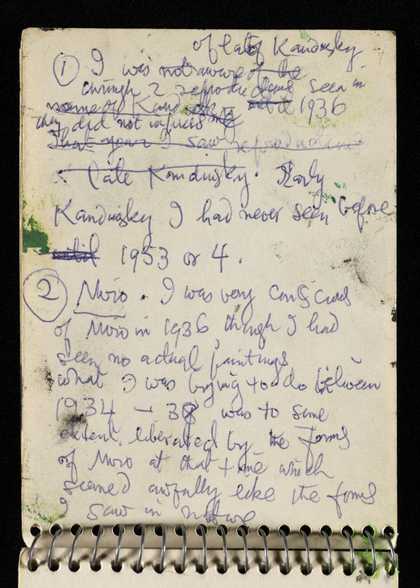 of late Kandinsky
① I was not aware of the
through 2 reproductions seen in
some of Kand 1936
they did not impress me
that year I saw reproductions
late Kandinsky. Early
Kandinsky I had never seen before
until 1953 or 4.
② Miro. I was very conscious
of Miro in 1936, though I had
seen no actual paintings
what I was trying to do between
1934 – 38 was to some
extent liberated by the forms
of Miro at that time which
seemed awfully like the forms
I saw in nature